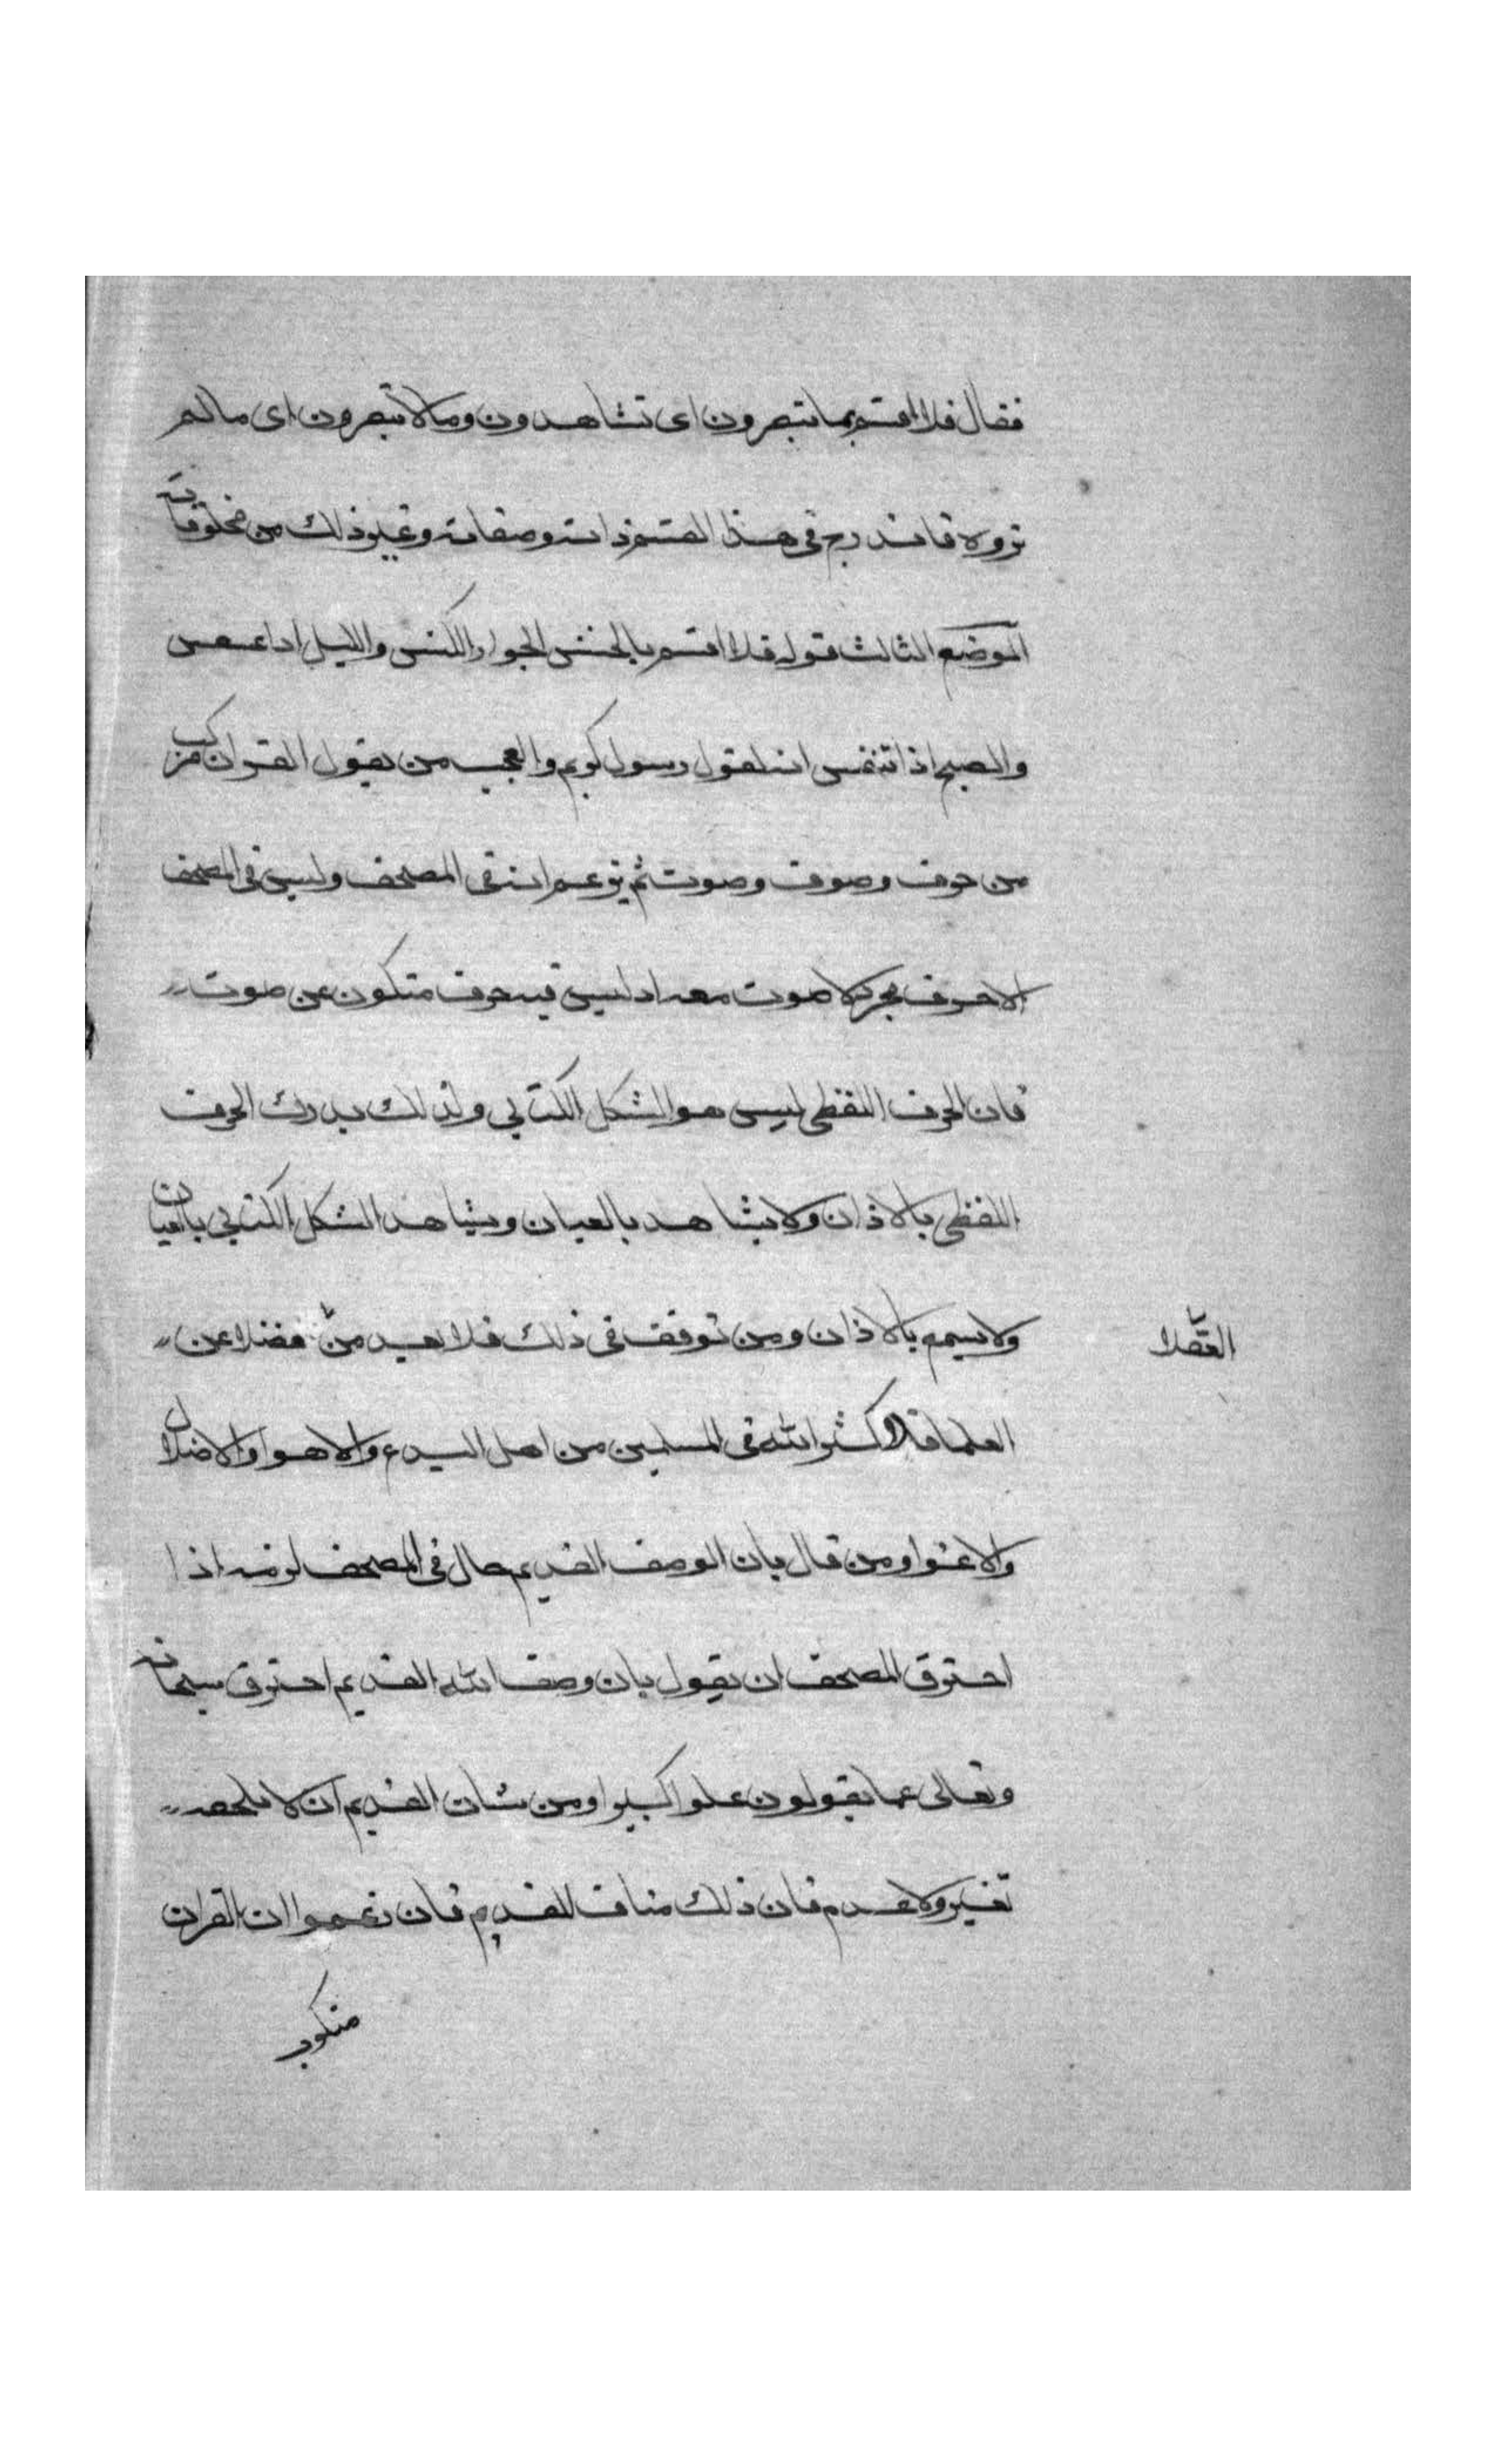 فقال فلا اقسم بما تبصرون اى تشاهدون ومالا تبصرون اى مالم
تروه فاندرج فى هذا القسم ذاته وصفاته وغير ذلك من مخلوقاته
الموضع الثالث قوله فلا اقسم بالخنس الجوار الكنس والليل اداعسعس
والصبح اذا تنفس انه لقول رسول كريم والعجب من يقول القران مركب
من حرف وصوف وصوت ثم يزعم انه فى المصحف وليس فى المصحف
الاحرف مجرد لا صوت معه اد ليس فيه حرف متكون عن صوت
فان الحرف اللفظى ليس هو الشكل الكتابي ولذلك يدرك الحرف
اللفظى بالاذان ولا يشاهد بالعيان ويشاهد الشكل الكتابي بالعيان
ولا يسمع بالاذان ومن توقف فى ذلك فلا يعد من فضلا عن
العقلا
العلما فلا كثر الله فى المسلمين من اهل البدع والاهوا والاضلال
والاغوا ومن قال بان الوصف القديم حال فى المصحف لزمه اذا
احترق المصحف ان يقول بان وصف الله القديم احترق سبحانه
وتعالى عما يقولون علوا كبيرا ومن شان القديم ان لا يلحقه
تغير ولا عدم فان ذلك مناف للقديم فان زعموا ان القران
مكتوب